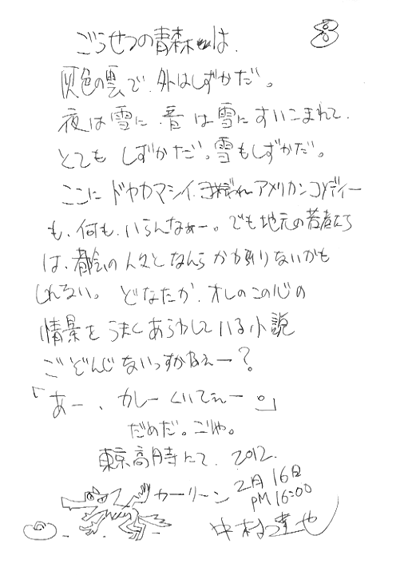 ごうせつの青森は、
灰色の雲で、外はしずかだ。
夜は雪に、音は雪にすいこまれて、
とてもしずかだ。雪もしずかだ。
ここにドヤカマシイ、アメリカンコメディー
も、何も、いらんなぁー。でも地元の若者たち
は、都会の人々となんらかわりないかも
しれない。どなたか、オレのこの心の
情景をうまくあらわしている小説
ごぞんじないっすかねえー?
「あー、カレーくいてえー。」
だめだ。こりゃ。
東京高円寺にて、2012.
2月16日
カーリーン
PM 16:00
中村達也